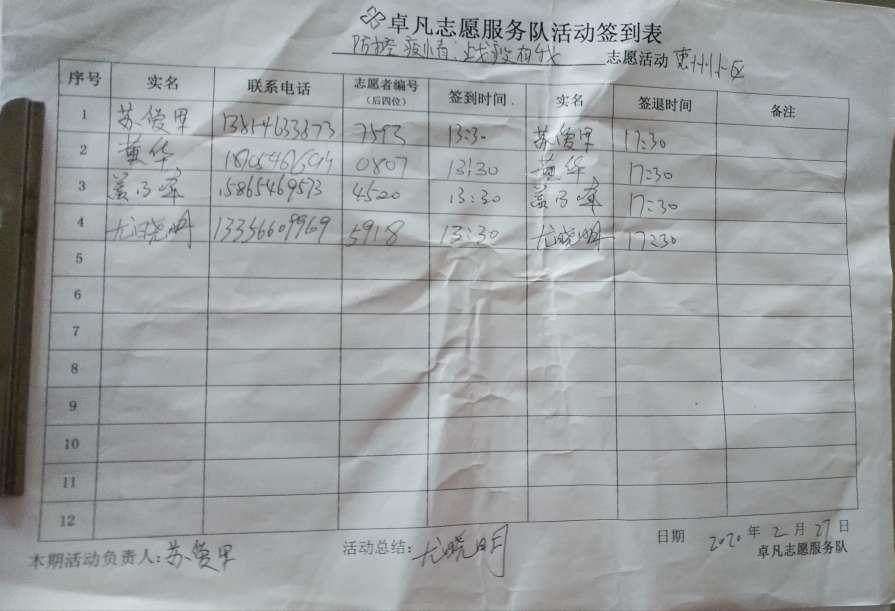 卓凡志愿服务队活动签到表
防控疫情 志愿活动 惠州小区
序号 实名 联系电话 志愿者编号（后四位） 签到时间 实名 签退时间 备注
1 苏俊果 7593 13:30 苏俊果 17:30
2 黄华 0807 13:30 黄华 17:30
3 15865469573 4520 13:30 17:30
4 尤晓明 13356609969 5918 13:30 尤晓明 17:30
5
6
7
8
9
10
11
12
本期活动负责人：苏俊果 活动总结：尤晓明 日期 2020年2月27日
卓凡志愿服务队